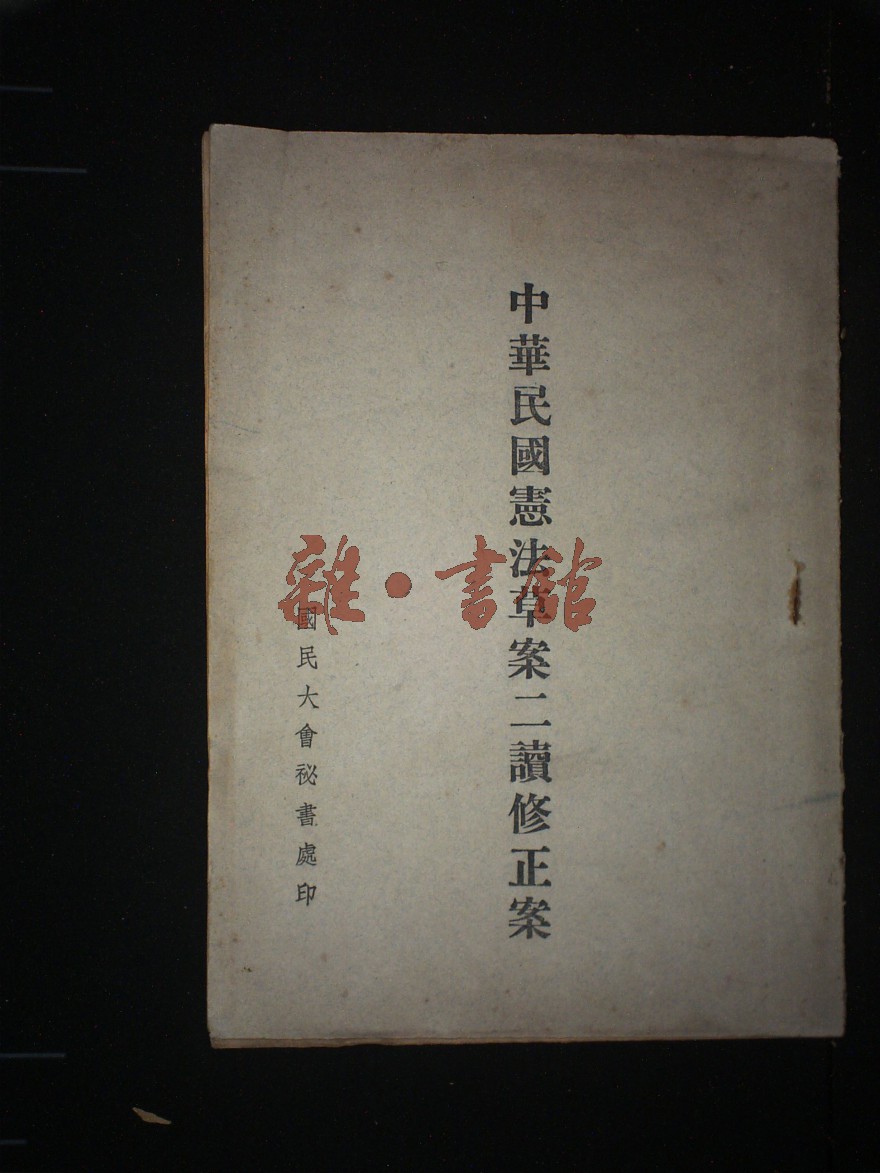 中華民國憲法草案二讀修正案
國民大會祕書處印
雜·書館